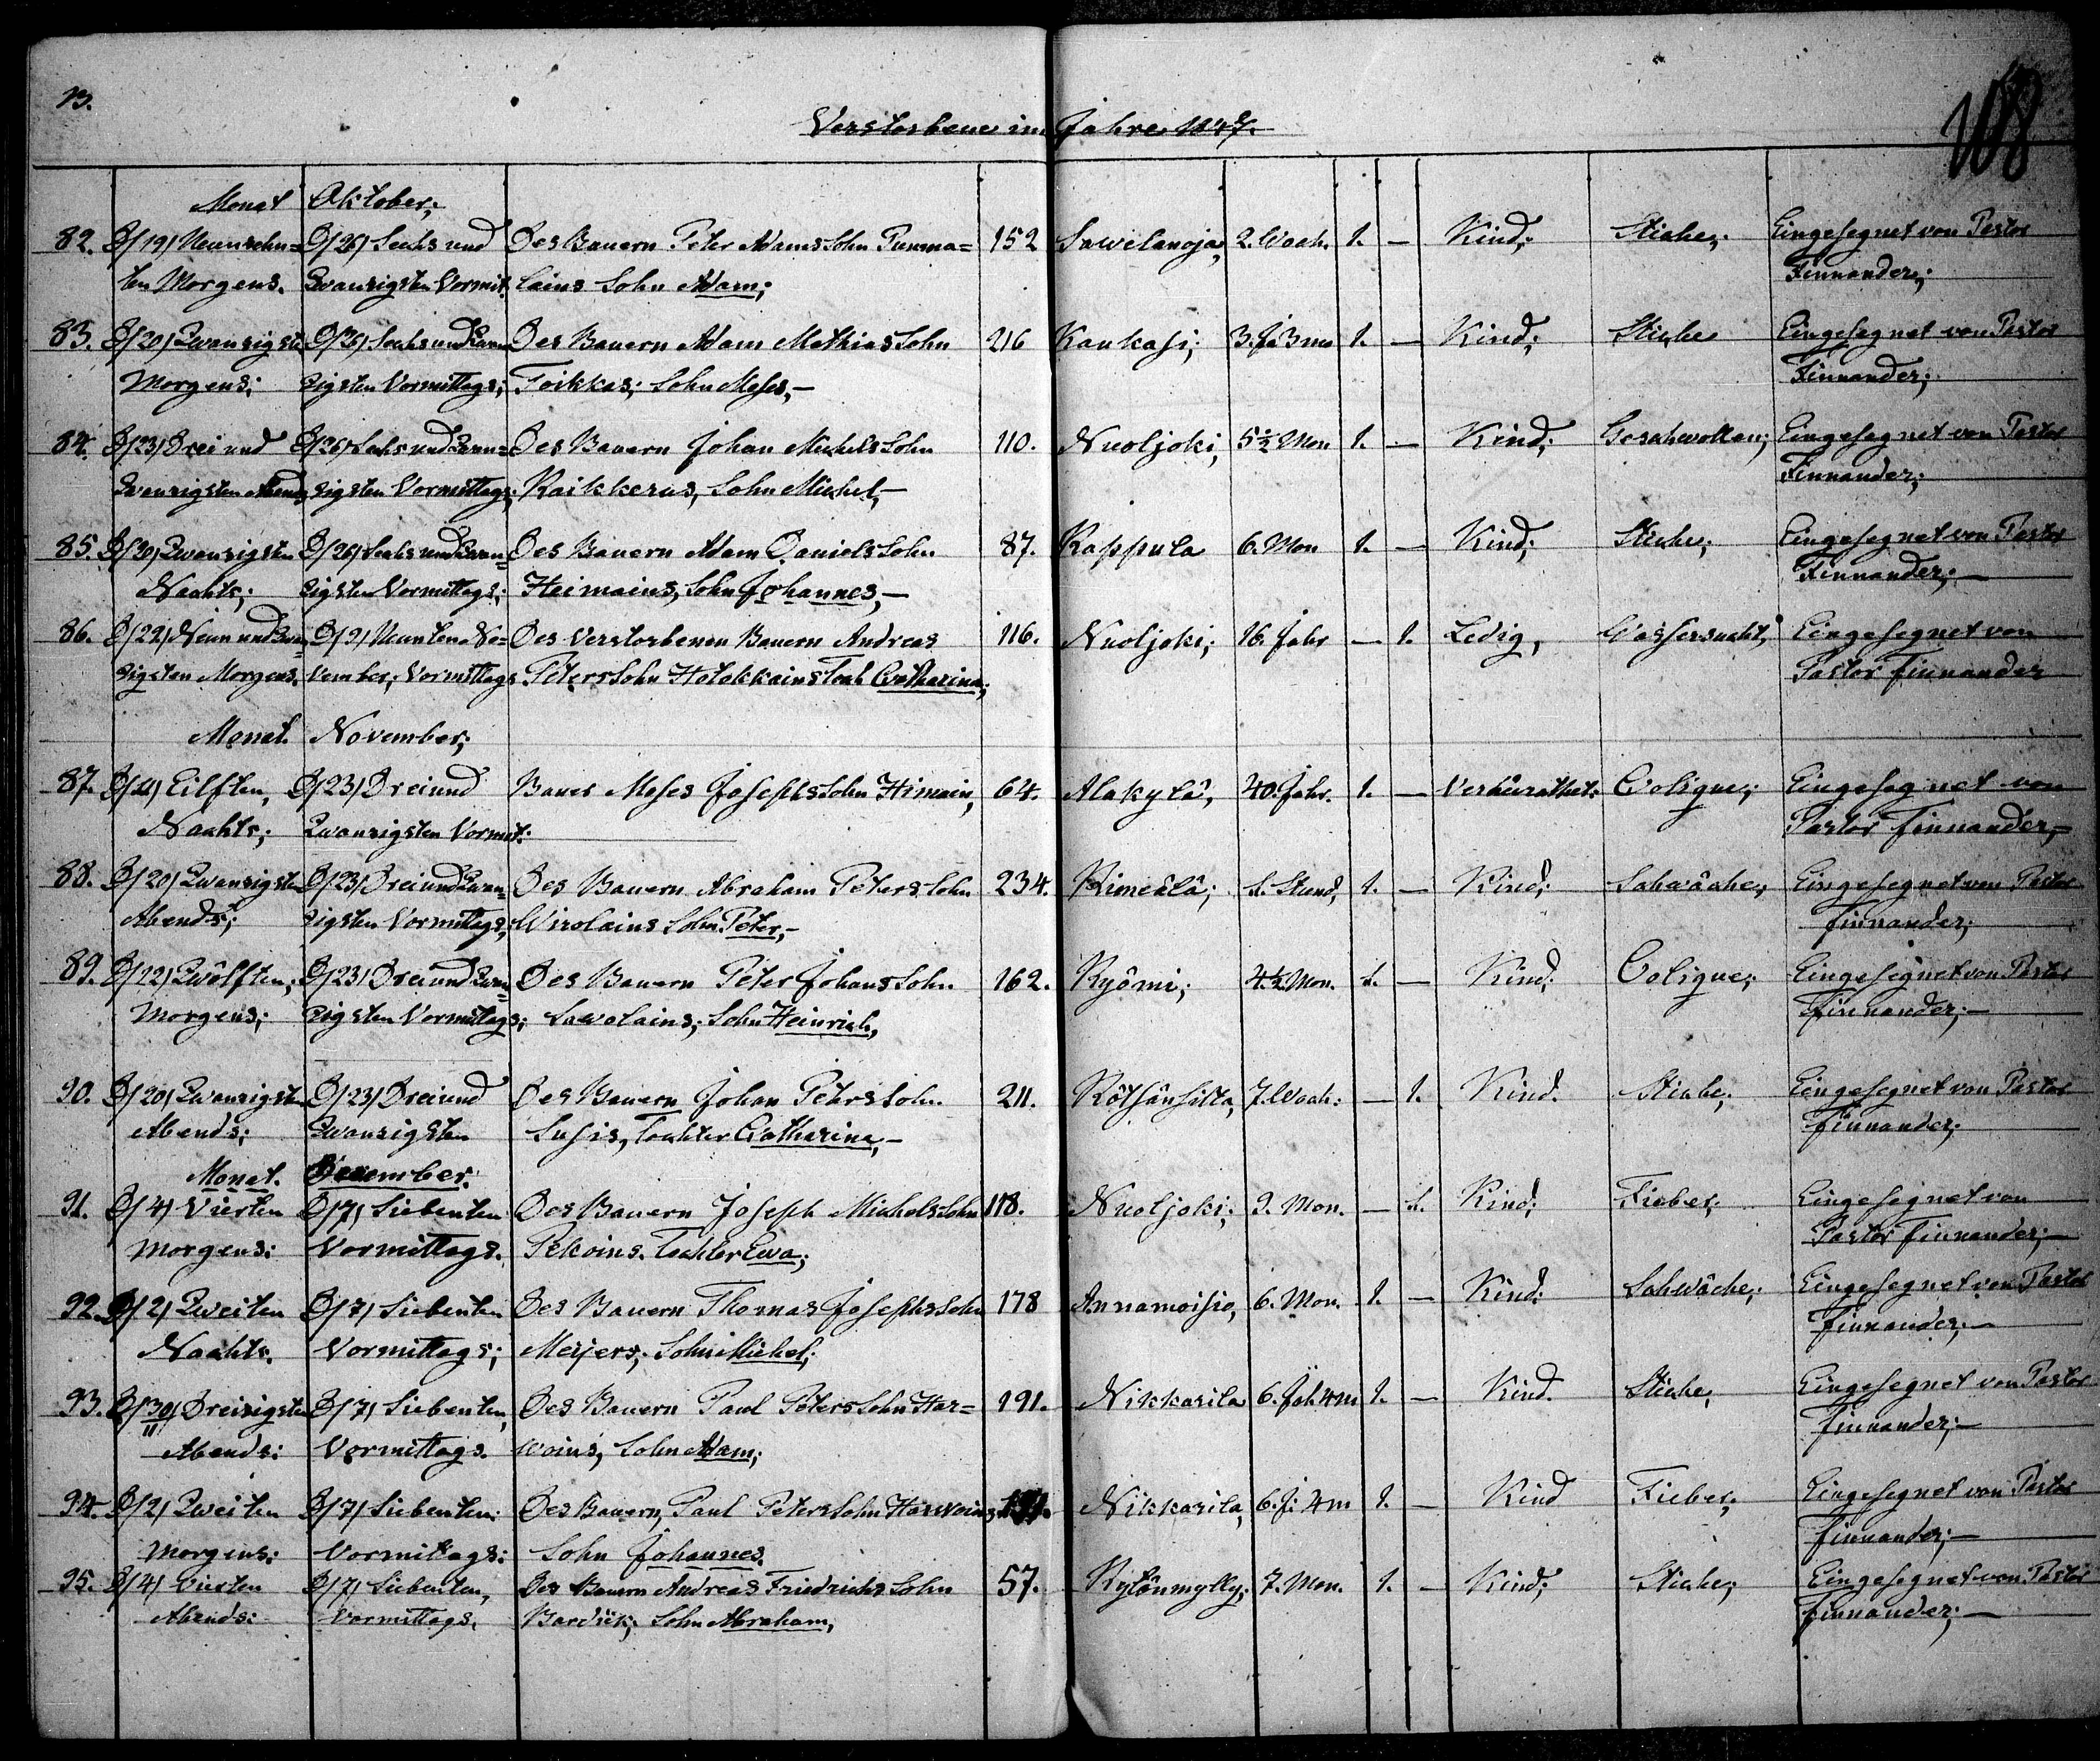 13.
108
Verstorbene im Jahre 1847.
Monat Oktober;
82. D/19/ Neunzehn= D/26/ Sechs und Des Bauern Peter Adams Sohn Punma= 152 Sawelanoja, 2. Woch. 1. — Kind; Stiche; Eingesegnet von Pastor
ten Morgens. Zwanzigsten Vormit. lains Sohn Adam; Finnander;
83. D/20/ Zwanzigste D/26/ Sechs und Zwan Des Bauern Adam Mathias Sohn 216 Kaukasi; 3. Ja 3 mo 1. — Kind; Stiche Eingesegnet von Pastor
Morgens; zigsten Vormittags; Toikkas; Sohn Moses, — Finnander;
84. D/23/ Drei und D/26/ Sechs und Zwan= Des Bauern Johan Michels Sohn 110. Nuoljoki, 5 1/2 Mon 1. — Kind; Geschwollen; Eingesegnet von Pastor
Zwanzigsten Abends zigsten Vormittags; Raikkerus, Sohn Michel, — Finnander;
85. D/20/ Zwanzigsten D/26/ Sechs und Zwan= Des Bauern Adam Daniels Sohn 87. Rappula 6. Mon 1. — Kind; Stiche; Eingesegnet von Pastor
Nachts; zigsten Vormittags; Heimains, Sohn Johannes, — Finnander; —
86. D/29/ Neun und Zwan D/9/ Neunten No= Des Verstorbenen Bauern Andreas 116. Nuoljoki; 16. Jahr — 1. Ledig, Wassersucht, Eingesegnet von
zigsten Morgens. vember; Vormittags Peters Sohn Hotokkains Toch Catharina; Pastor Finnander
Monat November;
87. D/11/ Eilften, D/23/ Drei und Bauer Moses Josephs Sohn Himain, 64. Alakylä, 40. Jahr. 1. — Verheirathet; Colique; Eingesegnet von
Nachts; Zwanzigsten Vormit: Pastor Finnander, —
88. D/20/ Zwanzigsten D/23/ Drei und Zwan= Des Bauern Abraham Peters Sohn 234. Kimeälä; 1. Stund, 1. — Kind; Schwäche; Eingesegnet von Pastor
Abends; zigsten Vormittags, Wirolains Sohn Peter, — Finnander;
89. D/12/ Zwölften; D/23/ Drei und Zwan= Des Bauern Peter Johans Sohn 162. Ryömi; 4 1/2 Mon. 1. — Kind; Colique; Eingesegnet von Pastor
Morgens; zigsten Vormittags; Sawolains; Sohn Heinrich, Finnander; —
90. D/20/ Zwanzigste D/23/ Drei und Des Bauern Johan Peters Sohn 211. Rötsänsilta, 7. Woch: — 1. Kind. Stiche; Eingesegnet von Pastor
Abends; Zwanzigsten Susis, Tochter Catharina, — Finnander;
Monat. Dezember.
91. D/4/ Vierten D/7/ Siebenten Des Bauern Joseph Michels Sohn 118. Nuoljoki; 9. Mon. — 1. Kind; Fieber; Eingesegnet von
Morgens: Vormittags. Pekoins. Tochter Ewa; Pastor Finnander; —
92. D/2/ Zweiten D/7/ Siebenten Des Bauern Thomas Josephs Sohn 178 Annamoisio, 6. Mon. 1. — Kind: Schwäche; Eingesegnet von Pastor
Nachts. Vormittags; Meijers, Sohn Michel; Finnander; —
93. D/30/11 Dreizigste D/7/ Siebenten, Des Bauern Paul Peters Sohn Har= 191. Nikkarila 6. Jah 4 m 1. — Kind. Stiche, Eingesegnet von Pastor
Abends: Vormittags. woins, Sohn Adam; Finnander; —
94. D/2/ Zweiten D/7/ Siebenten: Des Bauern, Paul Peters Sohn Harwoins Nikkarila, 6. J: 4 m 1. — Kind Fieber; Eingesegnet von Pastor
Morgens: Vormittags: Sohn Johannes. Finnander; —
95. D/4/ Vierten D/7/ Siebenten, Des Bauern Andreas Friedrichs Sohn 57. Kylänmylly; 7. Mon. 1. — Kind; Stiche; Eingesegnet von Pastor
Abends: Vormittags. Bardük; Sohn Abraham, Finnander; —